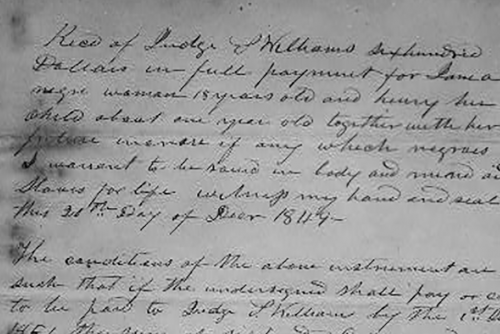 Recd of Judge S Williams sixhundred
Dollars in full payment for a
negro woman 18 years old and henry her
child about one year old together with her
future increase if any which negroes
I warrant to be sound in body and mind and
Slaves for life witness my hand and seal
this 20th Day of Decr 1849-
The conditions of the above instrument are
such that if the undersigned shall pay or
to be paid to Judge S Williams by the 1st